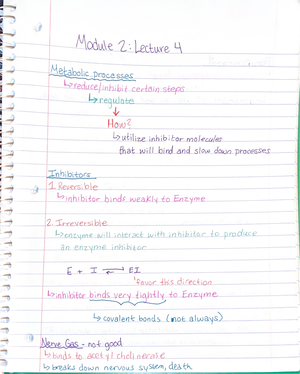 Module 2: Lecture 4
Metabolic processes
↳reduce/inhibit certain steps
↳regulate
↓
How?
↳utilize inhibitor molecules
that will bind and slow down processes
Inhibitors
1. Reversible
↳inhibitor binds weakly to Enzyme
2. Irreversible
↳enzyme will interact with inhibitor to produce
an enzyme inhibitor
E + I ⇌ EI
favor this direction
↳inhibitor binds very tightly to Enzyme
↳covalent bonds (not always)
Nerve Gas - not good
↳binds to acetyl cholinerase
↳breaks down nervous system, death